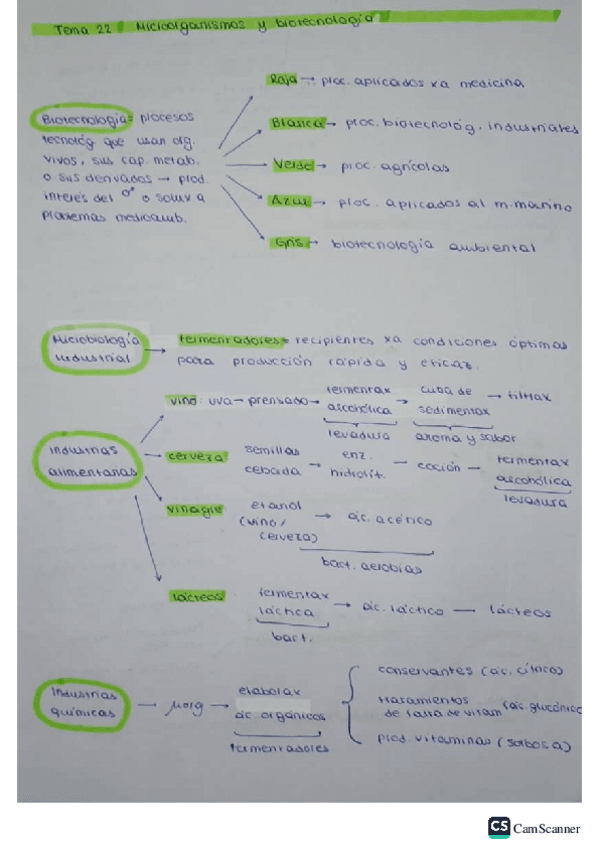 Tema 22 Microorganismos y biotecnología
Roja → proc. aplicados xa medicina
Biotecnología = procesos
tecnológ que usan org.
vivos, sus cap. metab.
o sus derivados → prod.
interés del o soluc a
problemas medioamb.
Blanca → proc. biotecnológ. industriales
Verde → proc. agrícolas
Azul → proc. aplicados al m. marino
Gris → biotecnología ambiental
Microbiología
industrial
fermentadores = recipientes xa condiciones óptimas
para producción rápida y eficaz.
Industrias
alimentarias
vino: uva → prensado → fermentax
alcohólica
levadura
→ cuba de
sedimentax
aroma y sabor
→ filtrax
cerveza semillas
cebada → enz.
hidrolít. → cocción → fermentax
alcohólica
levadura
vinagre etanol
(vino/
cerveza) → ác. acético
bact. aerobias
lácteos fermentax
láctica → ác. láctico → lácteos
bact.
Industrias
químicas → µorg → elaborax
ác. orgánicos
fermentadores
conservantes (ác. cítrico)
tratamientos (ác. glucónico
de falta de vitam
prod. vitaminas (sorbosa)
CS CamScanner